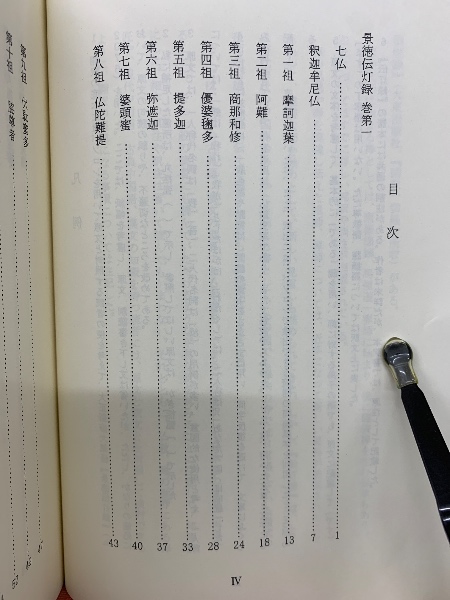 目次
景徳伝灯録 巻第一
七仏 1
釈迦牟尼仏 7
第一祖 摩訶迦葉 13
第二祖 阿難 18
第三祖 商那和修 24
第四祖 優婆毱多 28
第五祖 提多迦 33
第六祖 弥遮迦 37
第七祖 婆須蜜 40
第八祖 仏陀難提 43
第九祖
第十祖
IV